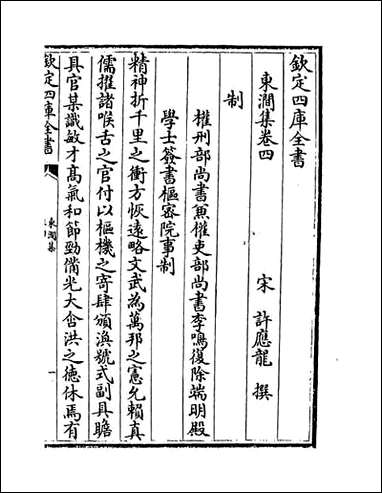 欽定四庫全書
東澗集卷四
宋　許應龍　撰
制
權刑部尚書兼權吏部尚書李鳴復除端明殿
學士簽書樞密院事制
精神折千里之衝方恢遠略文武為萬邦之憲允賴真
儒擢諸喉舌之官付以樞機之寄肆頒渙號式副具瞻
具官某識敏才髙氣和節勁備光大含洪之徳休焉有
欽定四庫全書
東澗集
一